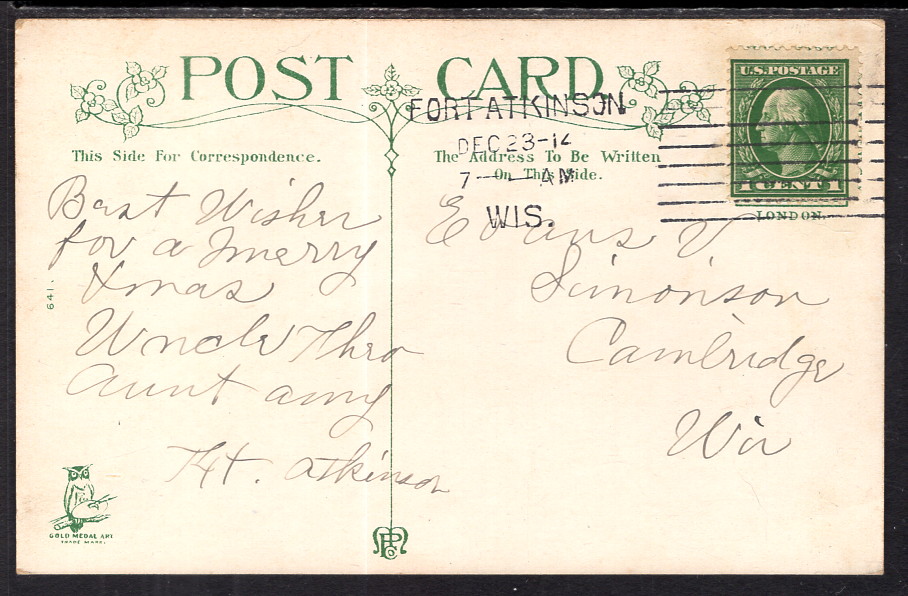 POST CARD
U.S. POSTAGE
FORT ATKINSON
DEC 23-14
7 — AM
WIS.
1 CENT 1
LONDON.
This Side For Correspondence.
The Address To Be Written
On This Side.
Best Wishes
for a merry
Xmas
Uncle Theo
Aunt Amy
Ft. Atkinson
Evans V.
Simonson
Cambridge
Wis
641.
GOLD MEDAL ART
TRADE MARK.